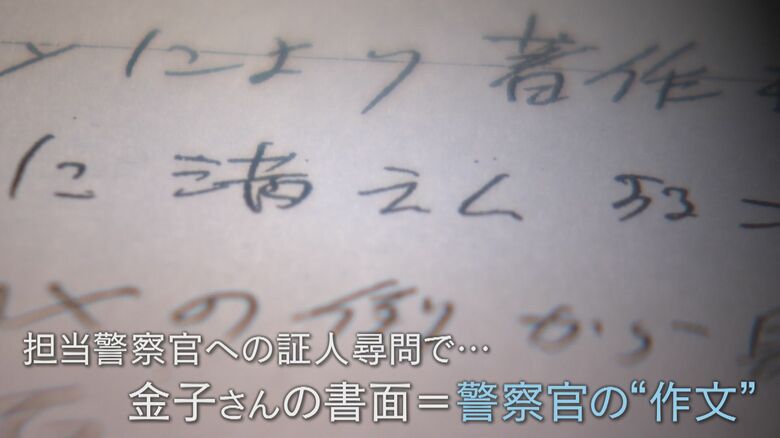 により著作
に満えん
の側から
担当警察官への証人尋問で…
金子さんの書面＝警察官の“作文”